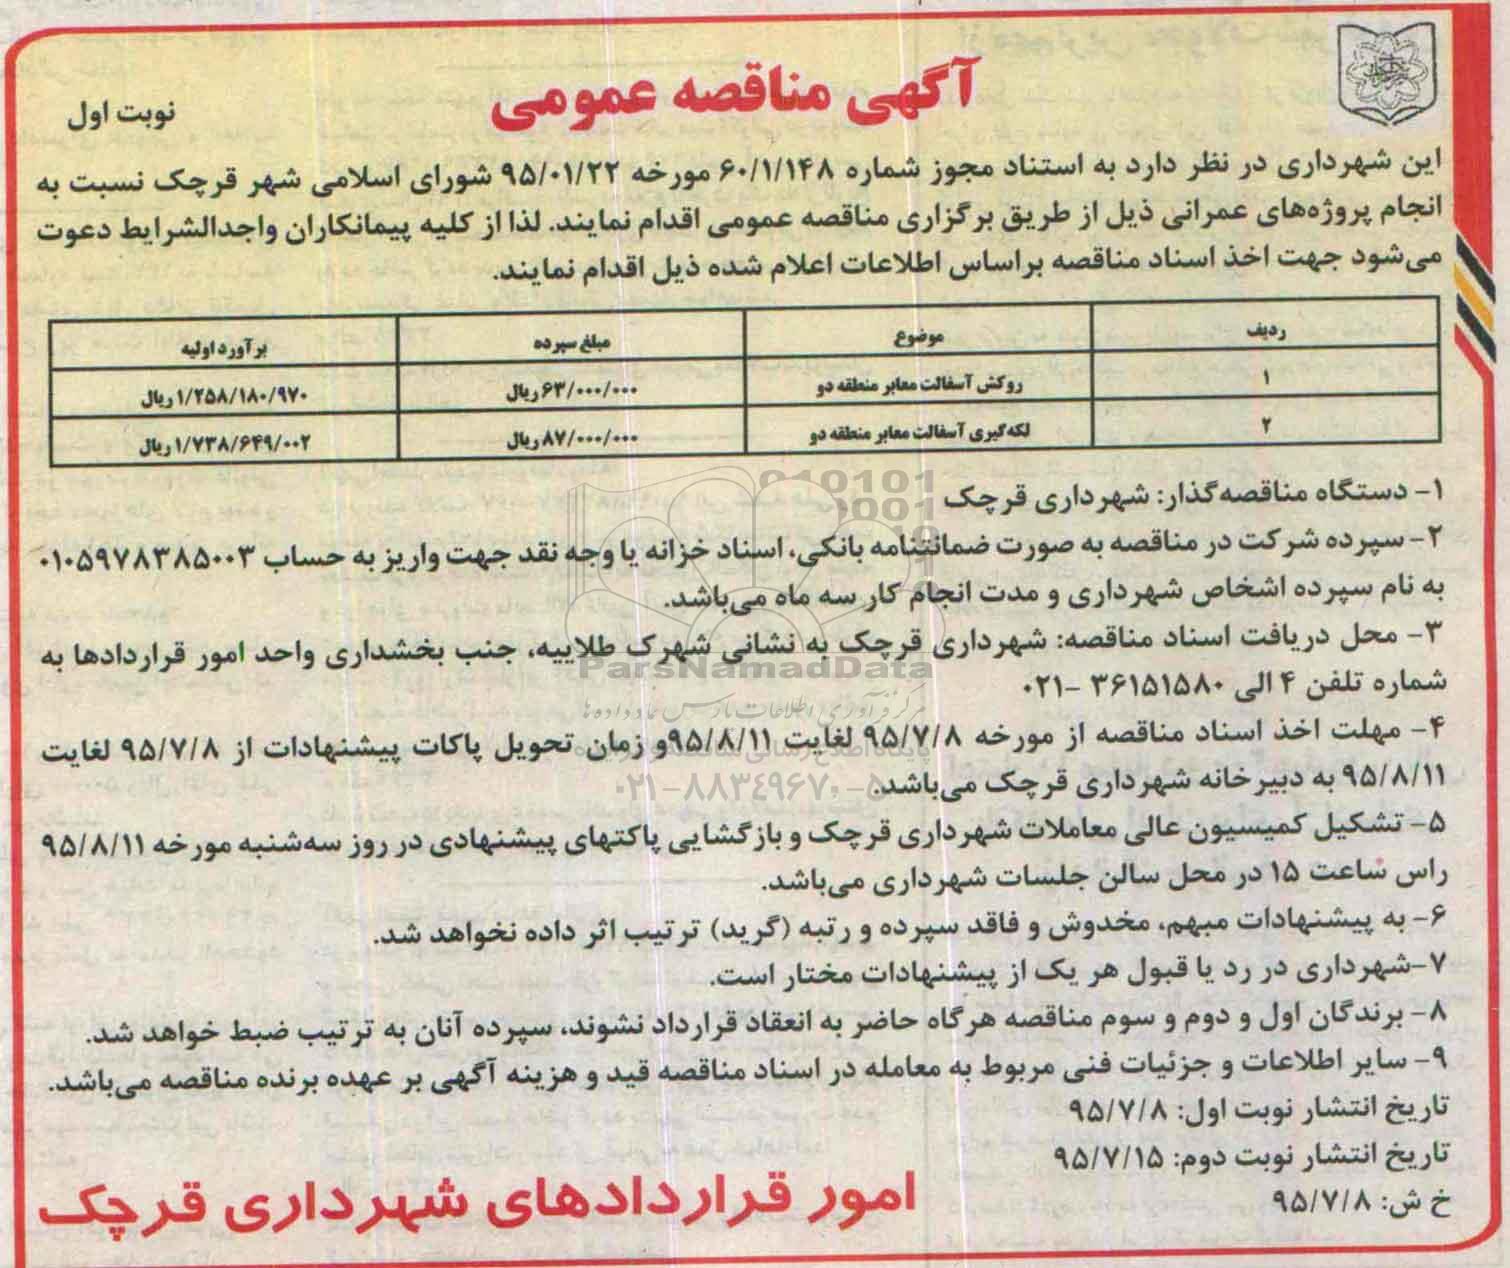 آگهی مناقصه عمومی
نوبت اول
این شهرداری در نظر دارد به استناد مجوز شماره ۶۰/۱/۱۴۸ مورخه ۹۵/۰۱/۲۲ شورای اسلامی شهر قرچک نسبت به
انجام پروژه‌های عمرانی ذیل از طریق برگزاری مناقصه عمومی اقدام نمایند. لذا از کلیه پیمانکاران واجدالشرایط دعوت
می‌شود جهت اخذ اسناد مناقصه براساس اطلاعات اعلام شده ذیل اقدام نمایند.
ردیف موضوع مبلغ سپرده برآورد اولیه
۱ روکش آسفالت معابر منطقه دو ۶۳/۰۰۰/۰۰۰ ریال ۱/۲۵۸/۱۸۰/۹۷۰ ریال
۲ لکه‌گیری آسفالت معابر منطقه دو ۸۷/۰۰۰/۰۰۰ ریال ۱/۷۳۸/۶۴۹/۰۰۲ ریال
۱- دستگاه مناقصه‌گذار: شهرداری قرچک
۲- سپرده شرکت در مناقصه به صورت ضمانتنامه بانکی، اسناد خزانه یا وجه نقد جهت واریز به حساب ۰۱۰۵۹۷۸۳۸۵۰۰۳
به نام سپرده اشخاص شهرداری و مدت انجام کار سه ماه می‌باشد.
۳- محل دریافت اسناد مناقصه: شهرداری قرچک به نشانی شهرک طلاییه، جنب بخشداری واحد امور قراردادها به
شماره تلفن ۴ الی ۳۶۱۵۱۵۸۰ -۰۲۱
۴- مهلت اخذ اسناد مناقصه از مورخه ۹۵/۷/۸ لغایت ۹۵/۸/۱۱ و زمان تحویل پاکات پیشنهادات از ۹۵/۷/۸ لغایت
۹۵/۸/۱۱ به دبیرخانه شهرداری قرچک می‌باشد.
۵- تشکیل کمیسیون عالی معاملات شهرداری قرچک و بازگشایی پاکتهای پیشنهادی در روز سه‌شنبه مورخه ۹۵/۸/۱۱
راس ساعت ۱۵ در محل سالن جلسات شهرداری می‌باشد.
۶- به پیشنهادات مبهم، مخدوش و فاقد سپرده و رتبه (گرید) ترتیب اثر داده نخواهد شد.
۷-شهرداری در رد یا قبول هر یک از پیشنهادات مختار است.
۸- برندگان اول و دوم و سوم مناقصه هرگاه حاضر به انعقاد قرارداد نشوند، سپرده آنان به ترتیب ضبط خواهد شد.
۹- سایر اطلاعات و جزئیات فنی مربوط به معامله در اسناد مناقصه قید و هزینه آگهی بر عهده برنده مناقصه می‌باشد.
تاریخ انتشار نوبت اول: ۹۵/۷/۸
تاریخ انتشار نوبت دوم: ۹۵/۷/۱۵
خ ش: ۹۵/۷/۸
امور قراردادهای شهرداری قرچک
ParsNamadData
مرکز فرآوری اطلاعات پارس نماد داده‌ها
۰۲۱-۸۸۳۴۹۶۷۰-۵